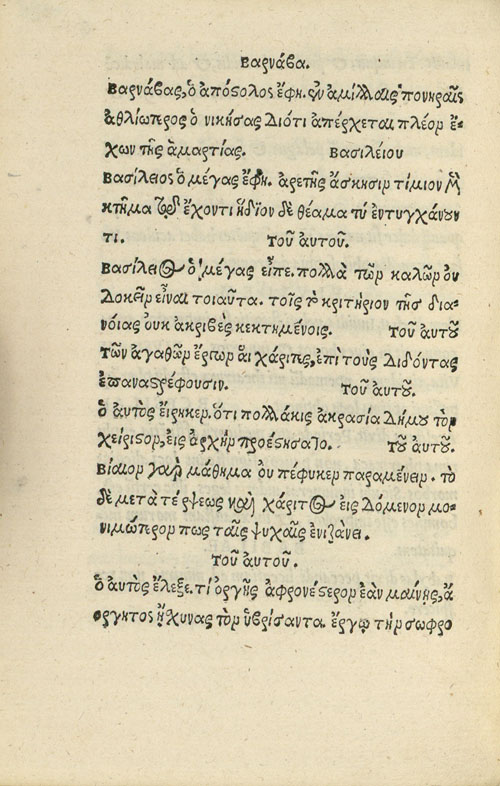 Βαρνάβα.
Βαρνάβας, ὁ ἀπόστολος ἔφη. ἐν ἁμίλλαις πονηραῖς
ἀθλιώτερος ὁ νικήσας Διότι ἀπέρχεται πλέον ἔ-
χων τῆς ἁμαρτίας. Βασιλείου
Βασίλειος ὁ μέγας ἔφη. ἀρετῆς ἄσκησιν τίμιον μὲν
κτῆμα τῷ ἔχοντι ἥδιον δὲ θέαμα τῷ ἐντυγχάνον
τι. Τοῦ αὐτοῦ.
Βασίλειος ὁ μέγας εἶπε. πολλὰ τῶν καλῶν οὐ
Δοκεῖν εἶναι τοιαῦτα. τοῖς τὸ κριτήριον τῆς δια-
νοίας οὐκ ἀκριβὲς κεκτημένοις. Τοῦ αὐτοῦ
τῶν ἀγαθῶν ἔργων αἱ χάριτες, ἐπὶ τοὺς Διδόντας
ἐπαναστρέφουσιν. Τοῦ αὐτοῦ.
ὁ αὐτὸς εἴρηκεν. ὅτι πολλάκις ἀκρασία Δήμου τὸν
χείριστον, εἰς ἀρχὴν προεστήσατο. Τοῦ αὐτοῦ.
Βίαιον γὰρ μάθημα οὐ πέφυκεν παραμένειν. τὸ
δὲ μετὰ τέρψεως καὶ χάριτος εἰς Δόμενον μο-
νιμώτερον πως ταῖς ψυχαῖς ἐνιζάνει.
Τοῦ αὐτοῦ.
ὁ αὐτὸς ἔλεξε. τί ὀργῆς ἀφρονέστερον ἐὰν μαίνῃς, ἀ
όργητος ᾔσχυνας τὸν ὑβρίσαντα. ἔργῳ τὴν σωφρο